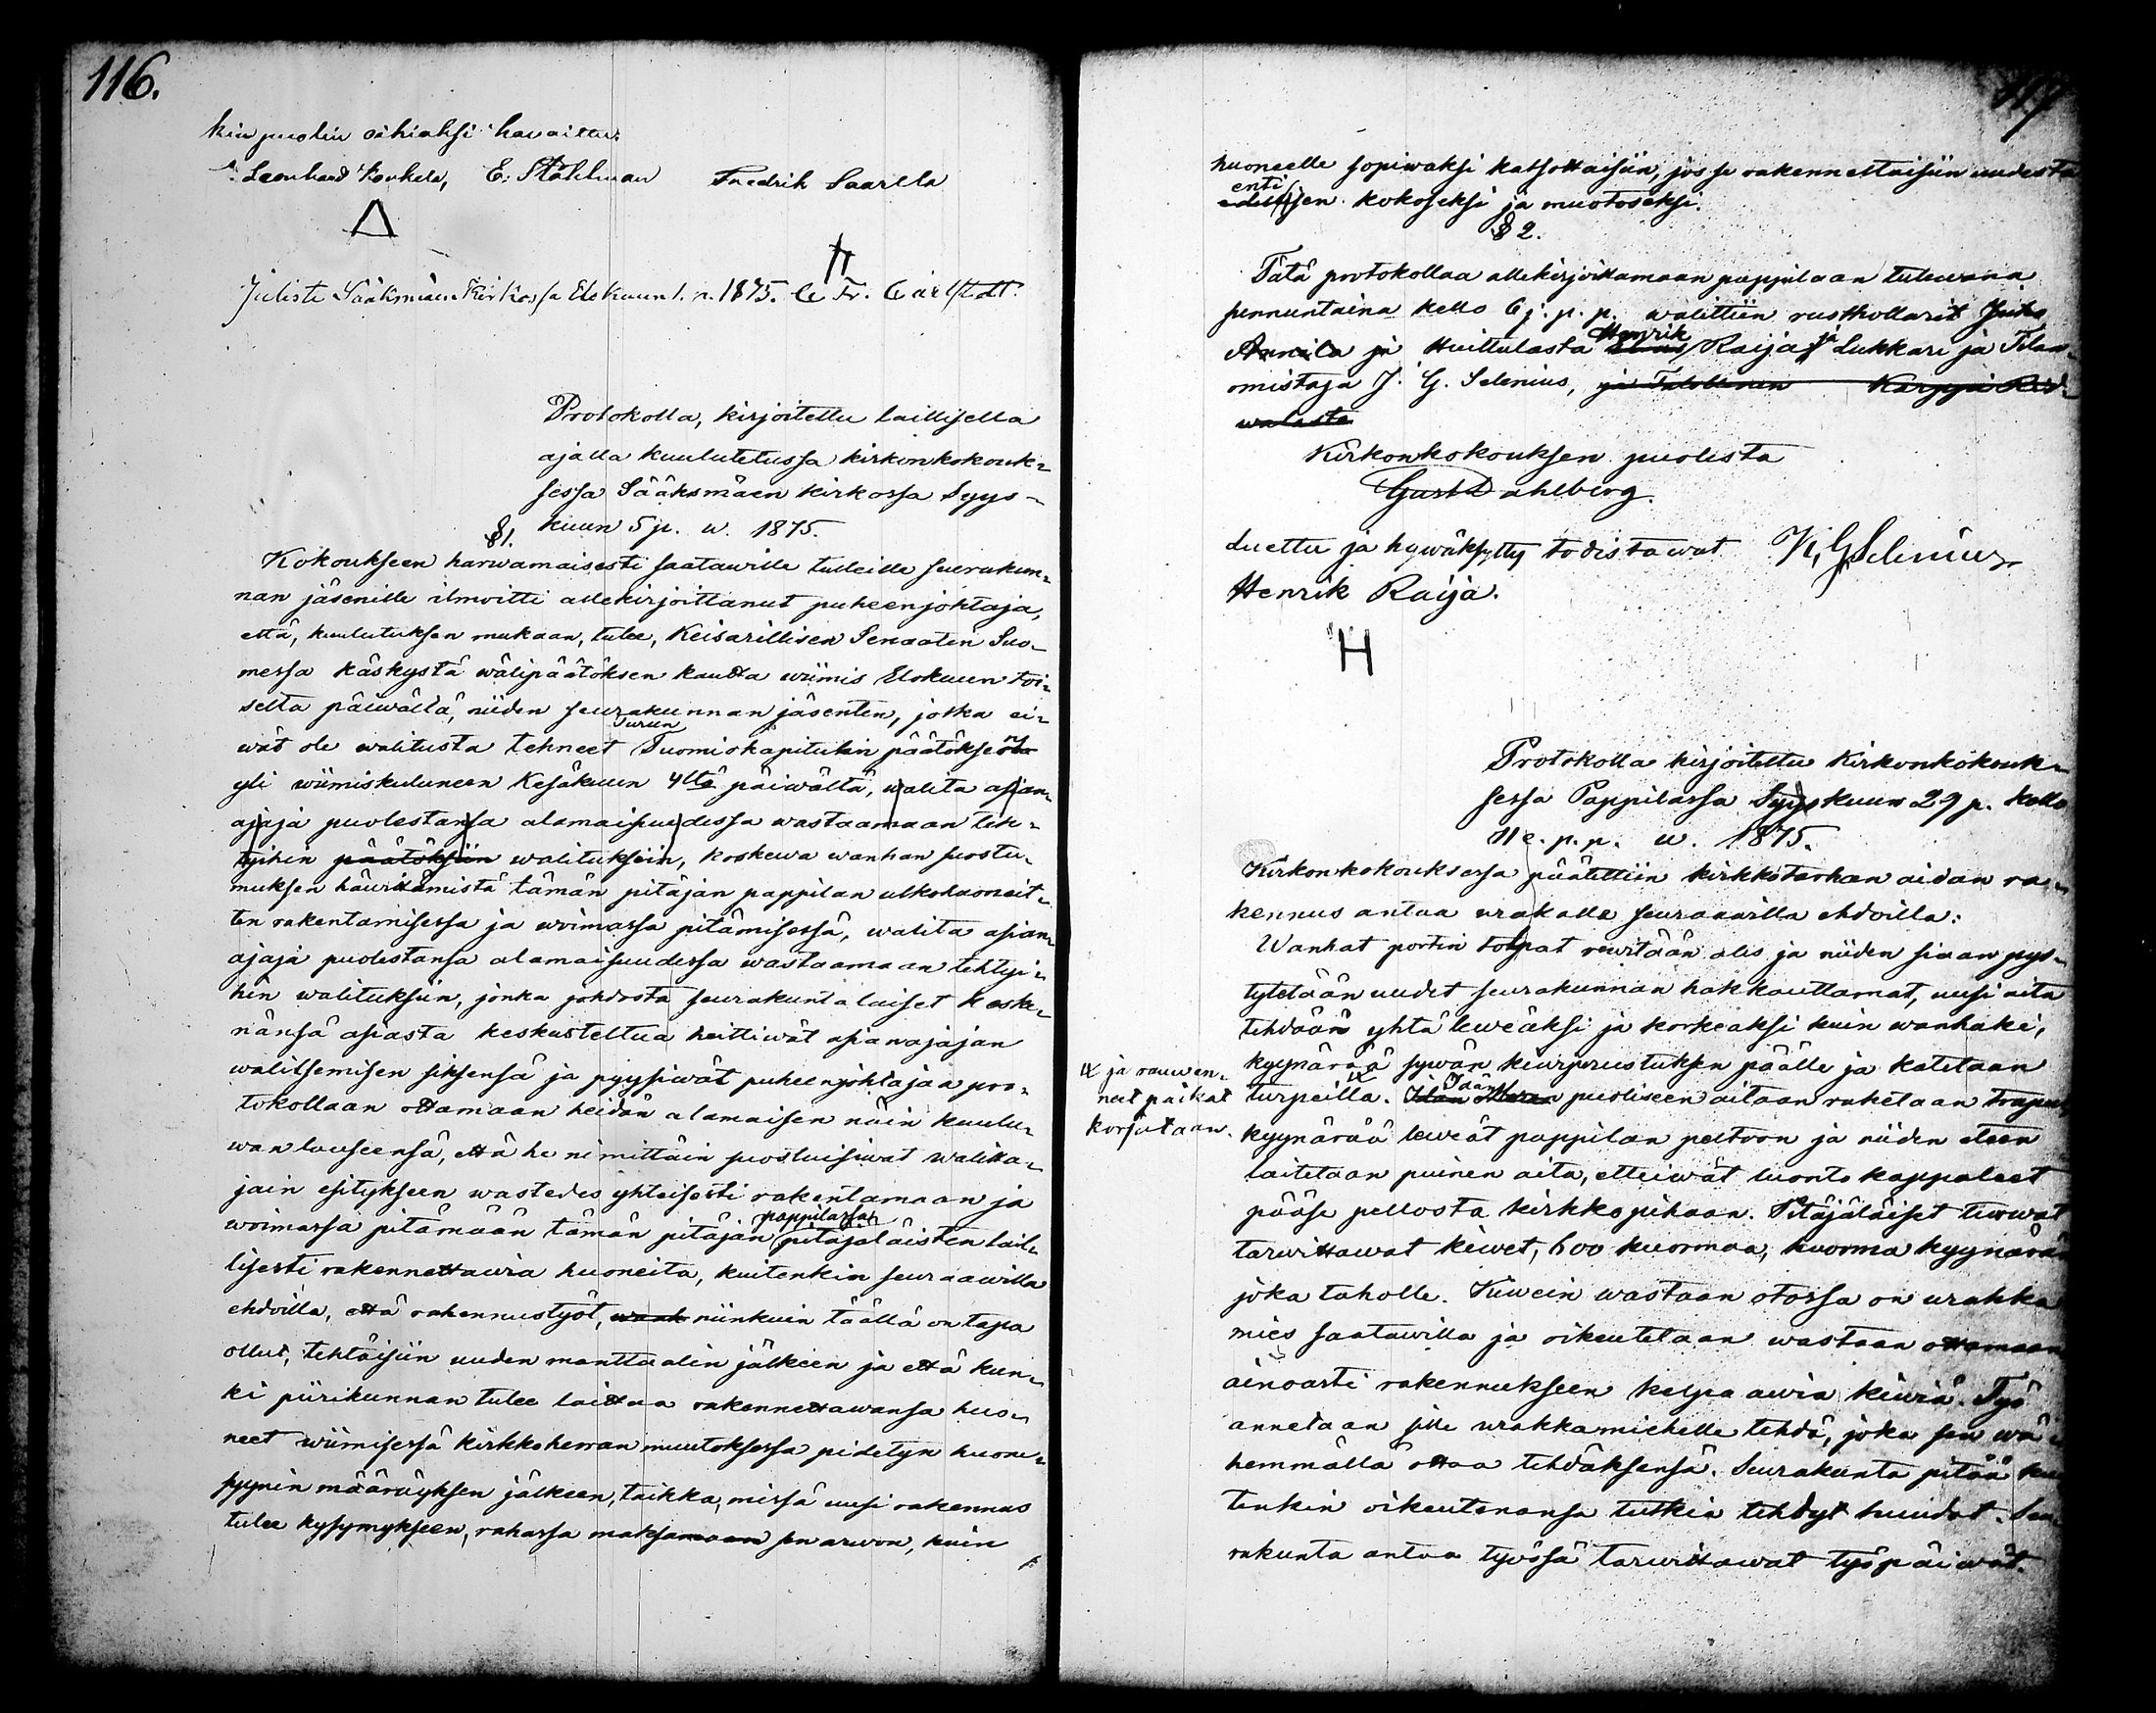 116.
kin puolin oikiaksi havaittu.
Leonhard Konkela, E. Ståhlman Fredrik Saarela
Julisti Sääksmäen Kirkossa Elokuun 1. p. 1875. C. Fr. Carlstedt.
Protokolla, kirjoitettu laillisella
ajalla kuulutetussa kirkonkokouk-
sessa Sääksmäen kirkossa Syys-
kuun 5 p. w. 1875.
§1.
Kokoukseen harwamaisesti saatawille tulleille seurakun-
nan jäsenille ilmoitti allekirjoittanut puheenjohtaja,
että, kuulutuksen mukaan, tulee, Keisarillisen Senaatin Suo-
messa käskystä wälipäätöksen kautta wiimis Elokuun toi-
selta päiwältä, niiden seurakunnan jäsenten, jotka ei-
Turun
wät ole walitusta tehneet Tuomiokapitulin päätöksen
yli wiimiskuluneen Kesäkuun 4ltä päiwältä, walita asian-
ajaja puolestansa alamaisuudessa wastaamaan teh-
tyihin päätöksiin walituksiin, koskewa wanhan suostu-
muksen häwittämistä tämän pitäjän pappilan ulkohuoneit-
ten rakentamisessa ja woimassa pitämisessä, walita asian-
ajaja puolestansa alamaisuudessa wastaamaan tehtyi-
hin walituksiin, jonka johdosta seurakuntalaiset keske-
nänsä asiasta keskusteltua heittiwät asianajajan
walitsemisen siksensä ja pyysiwät puheenjohtajaa pro-
tokollaan ottamaan heidän alamaisen näin kuulu-
wan lauseensa, että he nimittäin suostuisiwat walitta-
jain esitykseen wastedes yhteisesti rakentamaan ja
pappilassa
woimassa pitämään tämän pitäjän pitäjäläisten lail-
lisesti rakennettawia huoneita, kuitenkin seuraawilla
ehdoilla, että rakennustyöt, niinkuin täällä on tapa
ollut, tehtäisiin uuden manttaalin jälkeen ja että kun-
ki piirikunnan tulee laittaa rakennettawansa huo-
neet wiimisessä kirkkoherran muutoksessa pidetyn huone-
syynin määräyksen jälkeen, taikka, missä uusi rakennus
tulee kysymykseen, rahassa maksamaan sen arwon, kuin
117
huoneelle sopiwaksi katsottaisiin, jos se rakennettaisiin uudesta
enti
edellisen kokoseksi ja muotoseksi.
§ 2.
Tätä protokollaa allekirjoittamaan pappilaan tulewana
sunnuntaina kello 6 j. p. p. walittiin rusthollarit Juho
Henrik ja
Annila ja Huittulasta Raija Lukkari ja Tilan-
omistaja J. G. Selenius, ja Talollinen Karppi Rid-
walasta
Kirkonkokouksen puolesta
Gust Dahlberg.
Luettu ja hywäksytty todistawat K, G Selenius
Henrik Raija.
H
Protokolla kirjoitettu Kirkonkokouk-
sessa Pappilassa Syyskuun 29 p. kello
11 e. p. p. w. 1875.
Kirkonkokouksessa päätettiin kirkkotarhan aidan ra-
kennus antaa urakalle seuraawilla ehdoilla:
Wanhat portin tolpat rewitään alis ja niiden siaan pys-
tytetään uudet seurakunnan hakkauttamat, uusi aita
tehdään yhtä leweäksi ja korkeaksi kuin wanhaki,
kyynärää sywän kiwiperustuksen päälle ja katetaan
ja rauwen-
neet paikat
korjataan.
turpeilla. puoliseen aitaan raketaan trapu
kyynärää leweät pappilan peltoon ja niiden eteen
laitetaan puinen aita, etteiwät luontokappaleet
pääse pellosta kirkkopihaan. Pitäjäläiset tuowat
tarwittawat kiwet, 600 kuormaa, kuorma kyynärän
joka taholle. Kiwein wastaan otossa on urakka
mies saatawilla ja oikeutetaan wastaan ottamaan
ainoasti rakennukseen kelpaawia kiwiä. Työ
annetaan sille urakkamiehelle tehdä, joka sen wä-
hemmällä ottaa tehdäksensä. Seurakunta pitää kui
tenkin oikeutenansa tutkia tehdyt huudot. Seu-
rakunta antaa työssä tarwittawat työpäiwät.